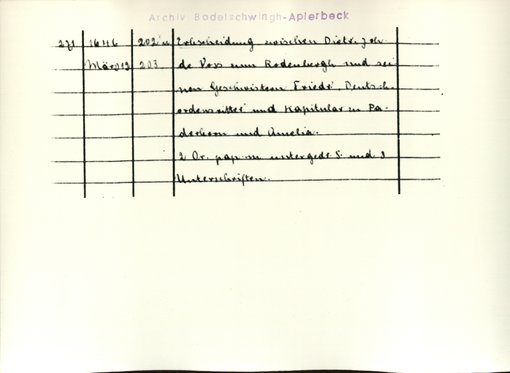 Archiv Bodelschwingh-Aplerbeck
271 1646 202 u Erbscheidung zwischen Dietr. Joh.
März 12 203. de Voss zum Rodenbergh und sei
nen Geschwistern Friedr. Deutsch-
ordensritter und Kapitular in Pa-
derborn und Amelia.
2 Or. pap. m. untergedr. S. und 3
Unterschriften.